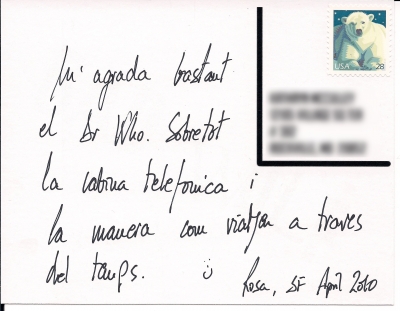 M'agrada bastant
el Dr Who. Sobretot
la cabina telefonica i
la manera com viatjen a traves
del temps. ☺
Rosa, SF April 2010
USA 28